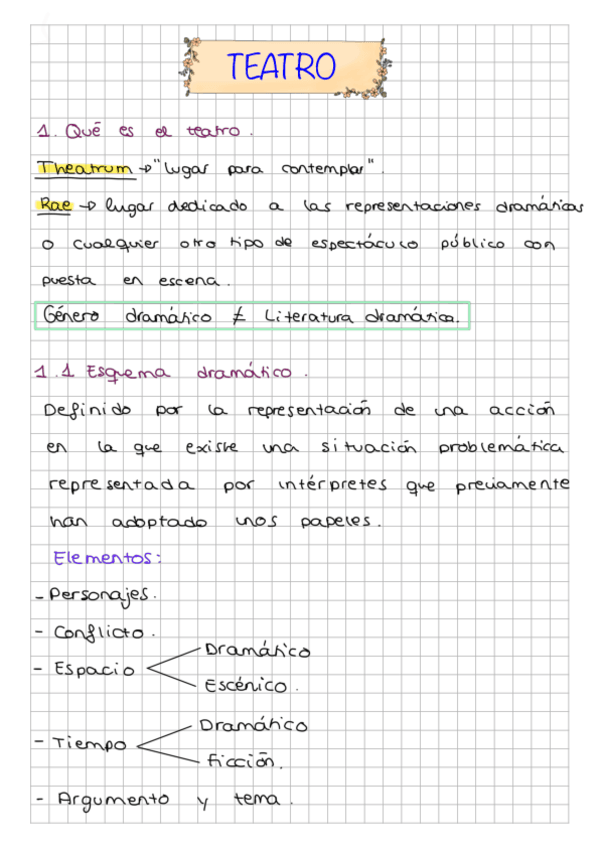 TEATRO
1. Qué es el teatro.
Theatrum → "lugar para contemplar".
Rae → lugar dedicado a las representaciones dramáticas
o cualquier otro tipo de espectáculo público con
puesta en escena.
Género dramático ≠ Literatura dramática.
1.1 Esquema dramático.
Definido por la representación de una acción
en la que existe una situación problemática
representada por intérpretes que previamente
han adoptado unos papeles.
Elementos:
- Personajes.
- Conflicto.
Dramático
- Espacio
Escénico.
Dramático
- Tiempo
Ficción.
- Argumento y tema.